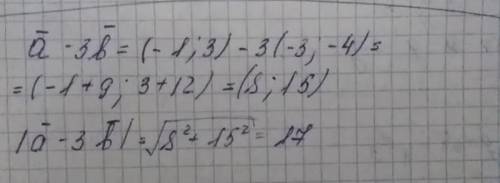 ā - 3b̄ = (-1; 3) - 3(-3; -4) =
= (-1+9; 3+12) = (8; 15)
|ā - 3b̄| = √8² + 15² = 17